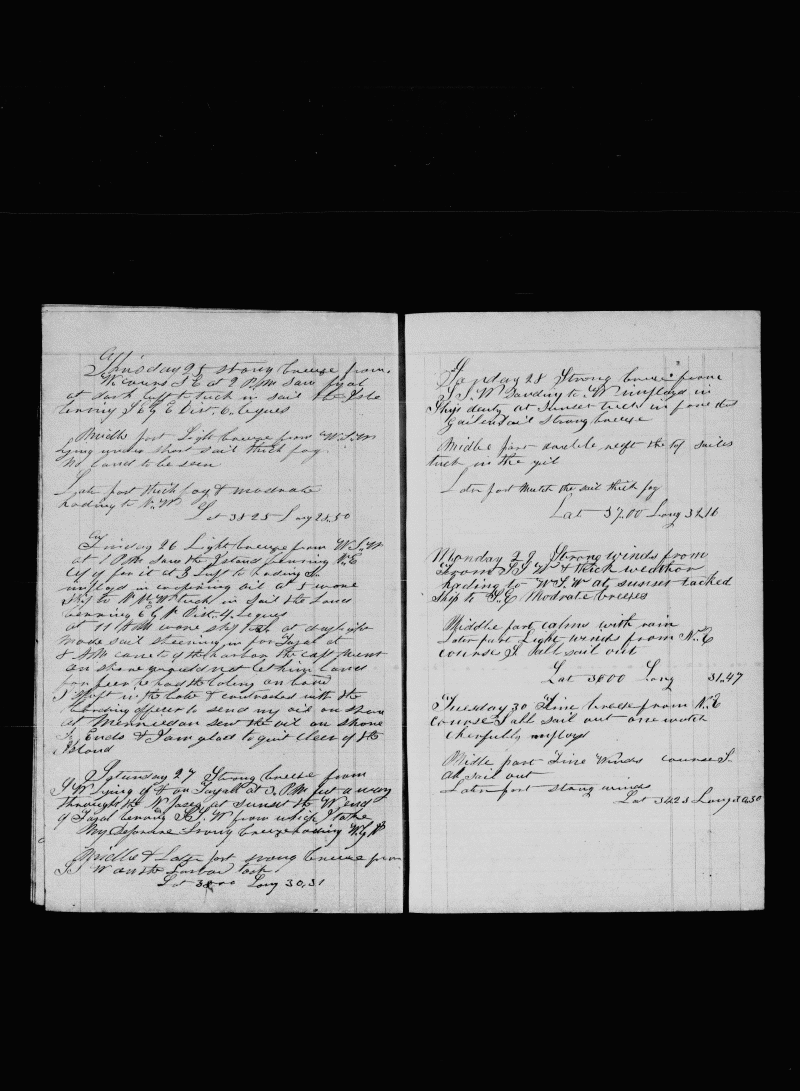 Thirsday 25 strong breeze from
W cours S E at 2 P.M saw Fyal
at dark luft to tuck in sail the Isle
bering S E by E Dist. 6. legues
Middle part Light breeze from W.S.W
lying under short sail thick fog
No Land to be seen
Later part thick fog & modrate
hading to N.W
Lat 38 25 Long 28.50
Friday 26 Light breeze from W.S.W
at 1 P.M. Saw the Island bearing N.E
of for it at 3 Luft to hading S.
imployd in coopering oil at wore
Ship to N.W. tuck in sail the Land
bering E by N Dist. 4. Legues
at 11 P.M wore ship at daylight
made sail stearing in for Fayal at
A.M came of the harbor the capt went
on shore would not let him Land
for fear he had the on bord
I shift in the bote & contracted with the
bording officer to send my oil on shore
at sent the oil on shore
So Ends & I am glad to git cleer of the
Island
Saturday 27 Strong breeze from
S W lying of & on Fayal at 3. P.M got a way
throught the Pasag at Sunset the W end
of Fayal bering from which I take
My deparure Strong breeze hading W by N
Middle & Later part strong breeze from
S W on the Larbord tack
Lat 38.00 Long 30,31
Sunday 28 Strong breeze from
S S. W Tending to W imployd in
Ships duty at Sunset tuck in fore &
sail strong breeze
Middle part double reeft the top sailes
tuck in the gib
Later part Mutch the sail thick fog
Lat 37.00 Long 32.16
Monday 29 Strong winds from
S S W & thick weather
hading to W S.W at sunset tacked
Ship to S.E Modrate breezes
Middle part calms with rain
Later part Light winds from N.E
course S all sail out
Lat 36 00 Long 31.47
Tuesday 30 Fine breeze from N.E
Course S all sail out one watch
cherfully imployd
Midle part Fine Winds course S.
all sail out
Later part strong winds
Lat 34.23 Long 30,30